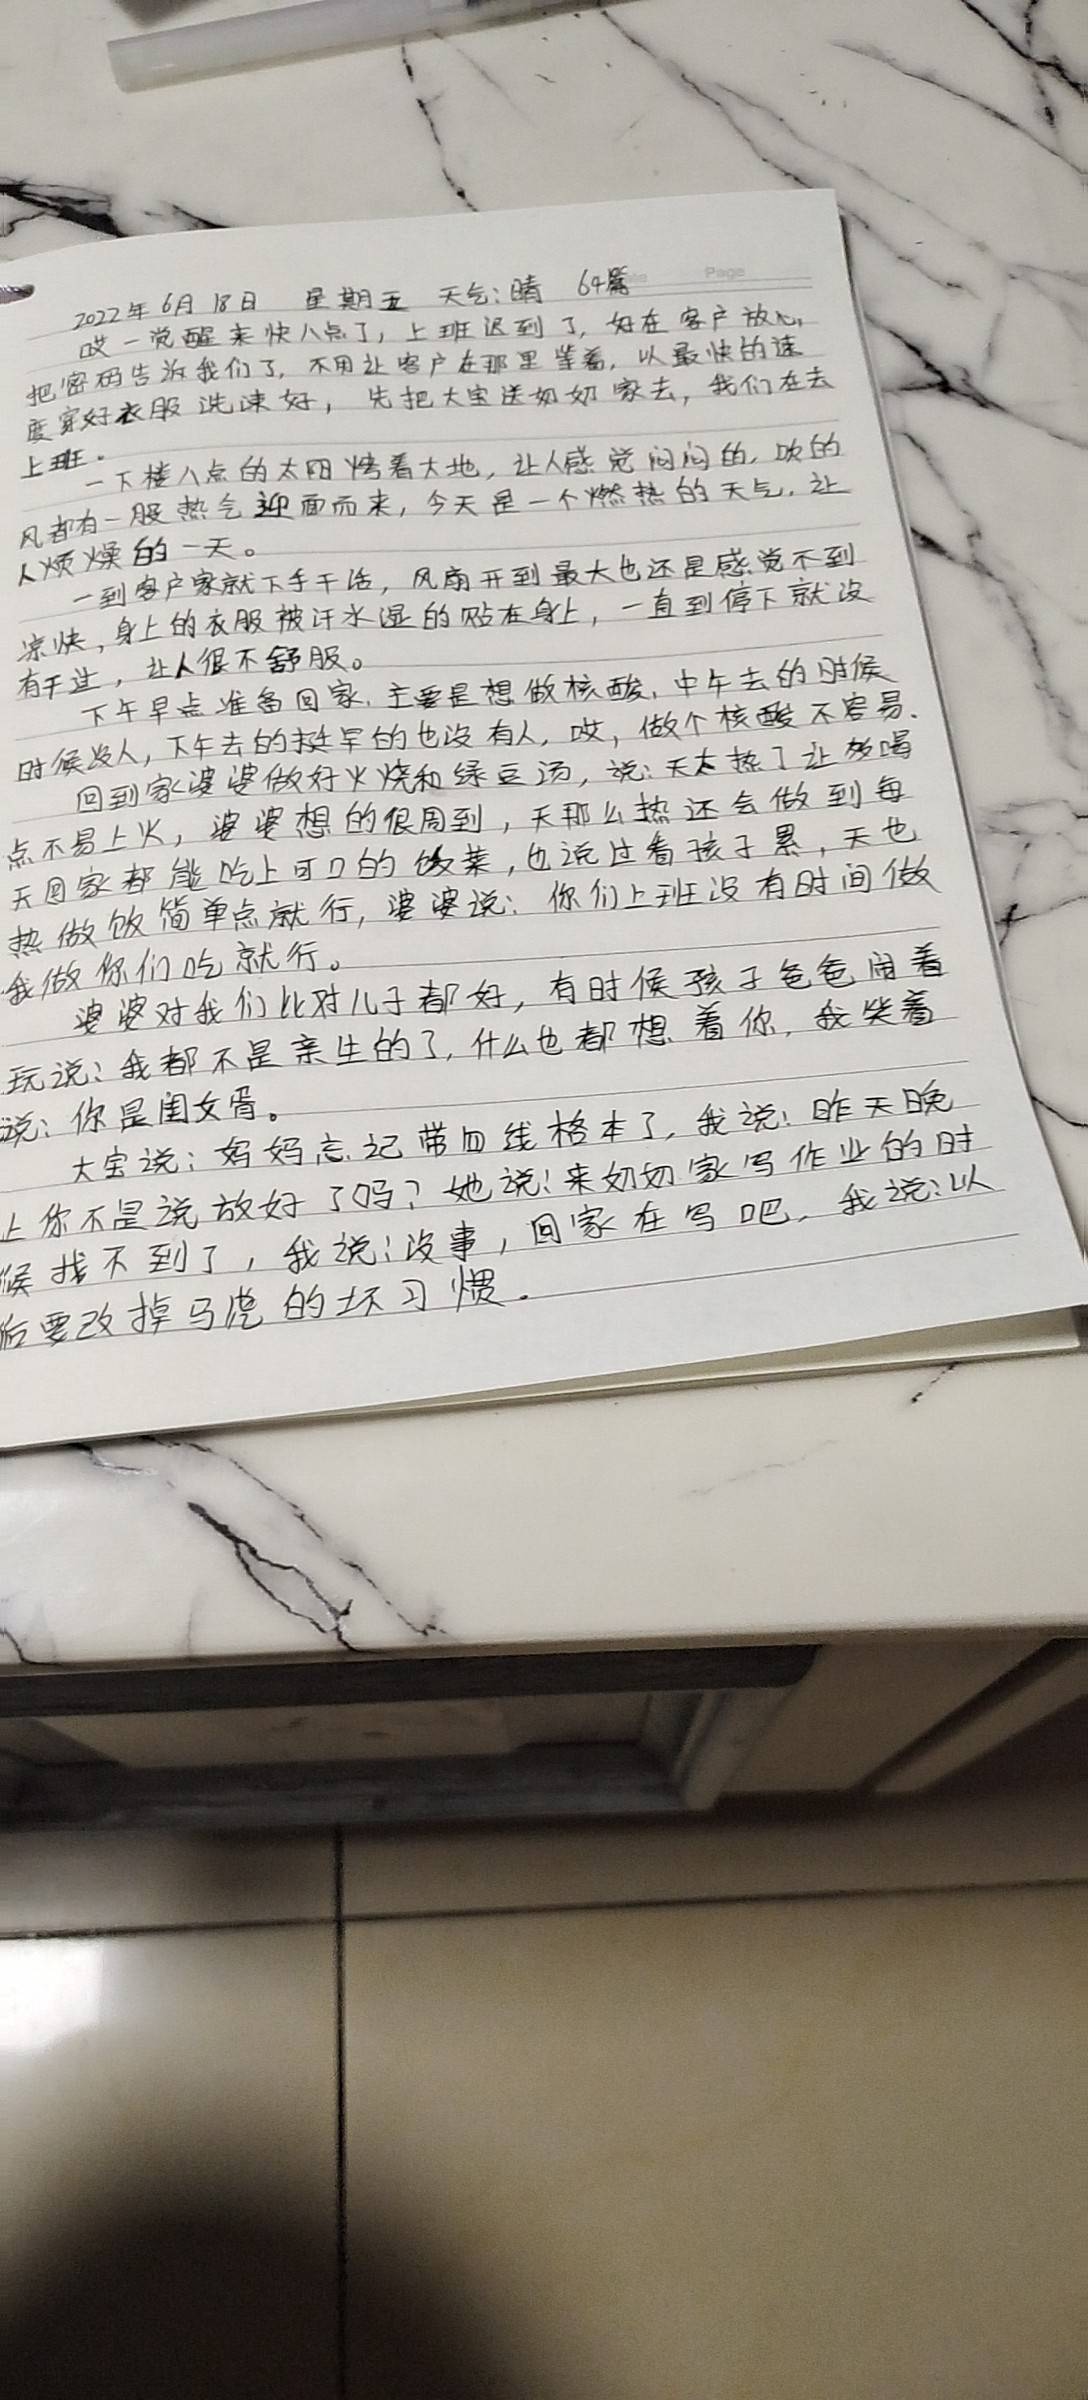 Page
2022年6月18日 星期五 天气:晴 64篇
哎一觉醒来快八点了,上班迟到了,好在客户放心,
把密码告诉我们了,不用让客户在那里等着,以最快的速
度穿好衣服洗涑好,先把大宝送奶奶家去,我们在去
上班。
一下楼八点的太阳烤着大地,让人感觉闷闷的,吹的
风都有一股热气迎面而来,今天是一个燃热的天气,让
人烦燥的一天。
一到客户家就下手干活,风扇开到最大也还是感觉不到
凉快,身上的衣服被汗水湿的贴在身上,一直到停下就没
有干过,让人很不舒服。
下午早点准备回家,主要是想做核酸,中午去的时候
时候没人,下午去的挺早的也没有人,哎,做个核酸不容易.
回到家婆婆做好火烧和绿豆汤,说:天太热了让多喝
点不易上火,婆婆想的很周到,天那么热还会做到每
天回家都能吃上可口的饭菜,也说过看孩子累,天也
热做饭简单点就行,婆婆说:你们上班没有时间做
我做你们吃就行。
婆婆对我们比对儿子都好,有时候孩子爸爸闹着
玩说:我都不是亲生的了,什么也都想着你,我笑着
说:你是闺女婿。
大宝说:妈妈忘记带四线格本了,我说:昨天晚
上你不是说放好了吗?她说:来奶奶家写作业的时
候找不到了,我说:没事,回家在写吧,我说:以
后要改掉马虎的坏习惯.